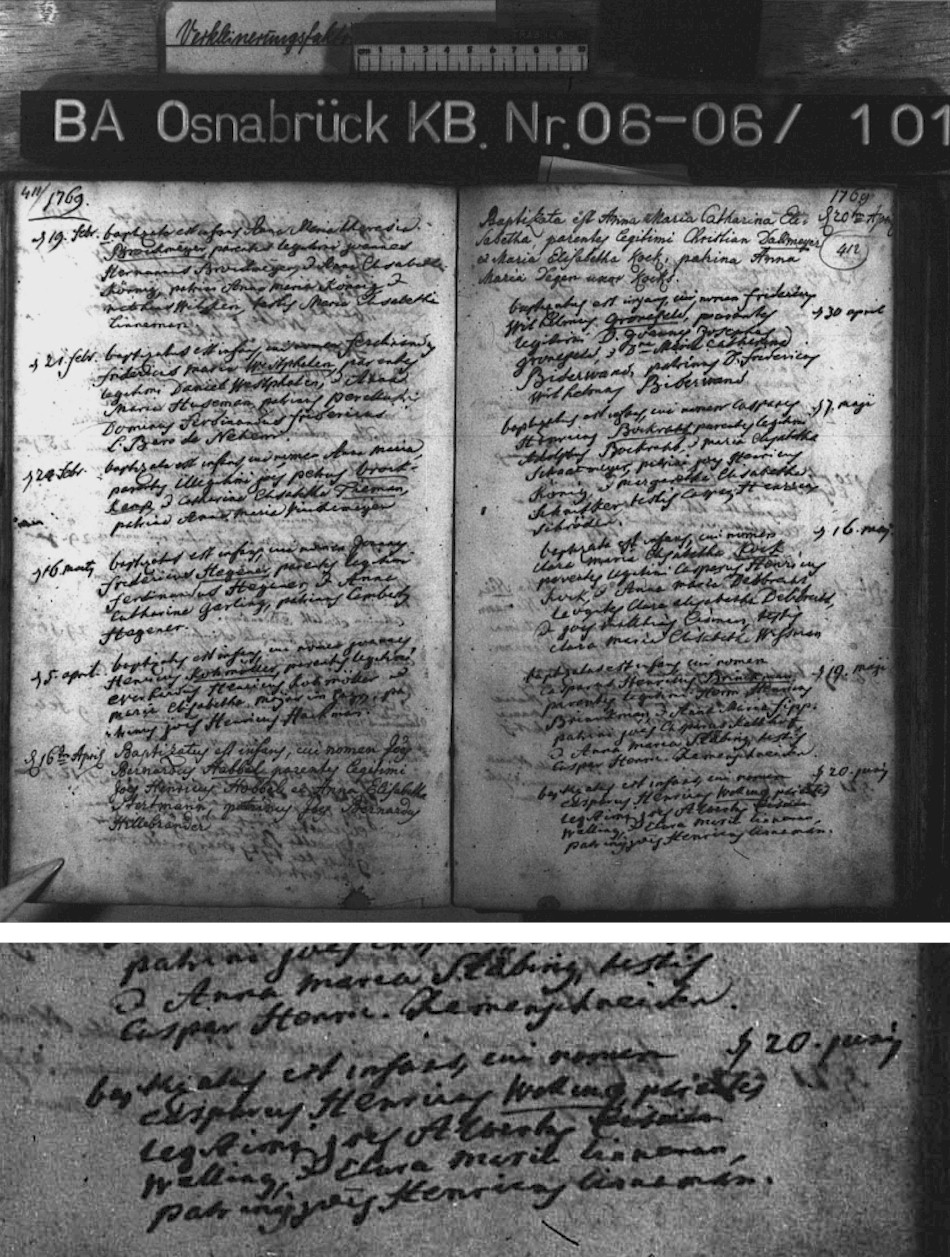 Verkleinerungsfaktor
cm 1 2 3 4 5 6 7 8 9 10
BA Osnabrück KB. Nr. 06-06/ 101
411/1769.
§ 19. febr. baptizata est infans Anna Maria Theresia
Brockmeyer parentes legitimi joannes
Hermannus Brockmeyer, & Anna Elisabetha
König, patrini Anna maria König &
testis Maria Elisabetha
Linneman.
§ 21. febr. baptizatus est infans, cui nomen ferdinandus
fridericus maria Westphalen, parentes
legitimi Daniel Westphalen, & Anna
Maria Huseman patrinus
Dominus Ferdinandus fridericus
L. Baro de Nehem.
§ 24 febr. baptizata est infans cui nomen Anna maria
parentes illegitimi joes petrus
& Catharina Elisabetha Tieman
patrina Anna maria
§ 16. martij baptizatus est infans, cui nomen Joannes
fridericus Hegener parentes legitimi
ferdinandus Hegener, & Anna
Catharina Gerling, patrinus
Hegener.
§ 5. april. baptizatus est infans, cui nomen joannes
Henricus Kohmöller, parentes legitimi
everhardus Henricus Kohmöller &
maria Elisabetha
joes Henricus Hackman.
§ 16ta April Baptizatus est infans, cui nomen Joës
Bernardus Habbel parentes legitimi
Joës Henricus Habbel et Anna Elisabetha
Stertmann, patrinus Joës Bernardus
Hillebrander
1769
Baptizata est Anna Maria Catharina Eli- § 20ma April
sabetha, parentes legitimi Christian Dallmeyer 412
et Maria Elisabetha Kock, patrina Anna
Maria Degen uxor Kocks.
baptizatus est infans, cui nomen fridericus § 30 april
Wilhelmus Gronefeld, parentes
legitimi D. Joannes Josephus
Gronefeld & Dna Maria Catharina
Biderwand, patrinus D. fridericus
Wilhelmus Biderwand.
baptizatus est infans, cui nomen Casparus § 7. maji
Henricus Bockrath parentes legitimi
Adolphus Bockrath, & maria Elisabetha
patrini joes Henricus
König, & margaretha Elisabetha
testis Caspar Henricus
Schröder.
baptizata est infans, cui nomen § 16. maji
Clara maria Elisabetha Kock
parentes legitimi Casparus Henricus
Kock, & Anna maria
Levantes Clara elisabetha
& joes testis
Clara maria Elisabeth Wissman
baptizatus est infans, cui nomen § 19. maji
Casparus Henricus Brinckman,
parentes legitimi Herm Henricus
Brinckman, & Anna Maria
patrini joes Casparus
& Anna maria Stübing, testis
Caspar Henric. Riemenschneider.
baptizatus est infans, cui nomen § 20. junij
Casparus Henricus Welling, parentes
legitimi joes Albertus
Welling, & Clara maria linneman,
patrinus joes Henricus linneman.
patrini joes
& Anna maria Stübing, testis
Caspar Henric. Riemenschneider.
baptizatus est infans, cui nomen § 20. junij
Casparus Henricus Welling, parentes
legitimi joes Albertus
Welling, & Clara maria linneman,
patrinus joes Henricus linneman.